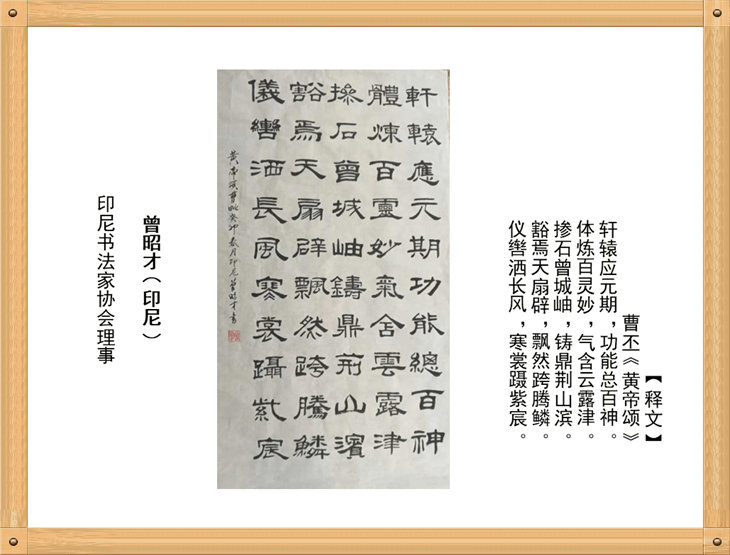 【释文】
曹丕《黄帝颂》
轩辕应元期，功能总百神。
体炼百灵妙，气含云露津。
掺石曾城岫，铸鼎荆山滨。
豁焉天扇辟，飘然跨腾鳞。
仪辔洒长风，寒裳蹑紫宸。
軒轅應元期功能總百神
體煉百靈妙氣含雲露津
掺石曾城岫鑄鼎荊山濱
豁焉天扇辟飄然跨騰鱗
儀轡洒長風寒裳蹑紫宸
黄帝颂曹丕癸卯春月印尼曾昭才書
曾昭才（印尼）
印尼书法家协会理事